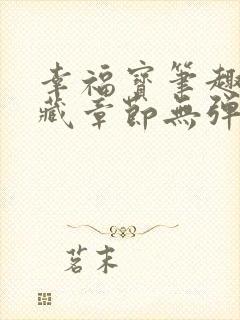 幸福寳筆趣
藏章節無彈
茗末